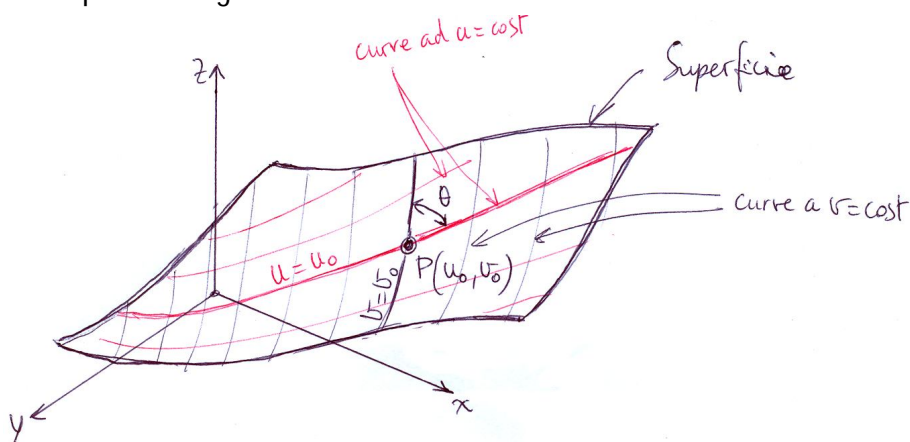 curve ad u=cost
z
Superficie
θ
curve a v=cost
u=u₀
P(u₀,v₀)
v=v₀
x
y